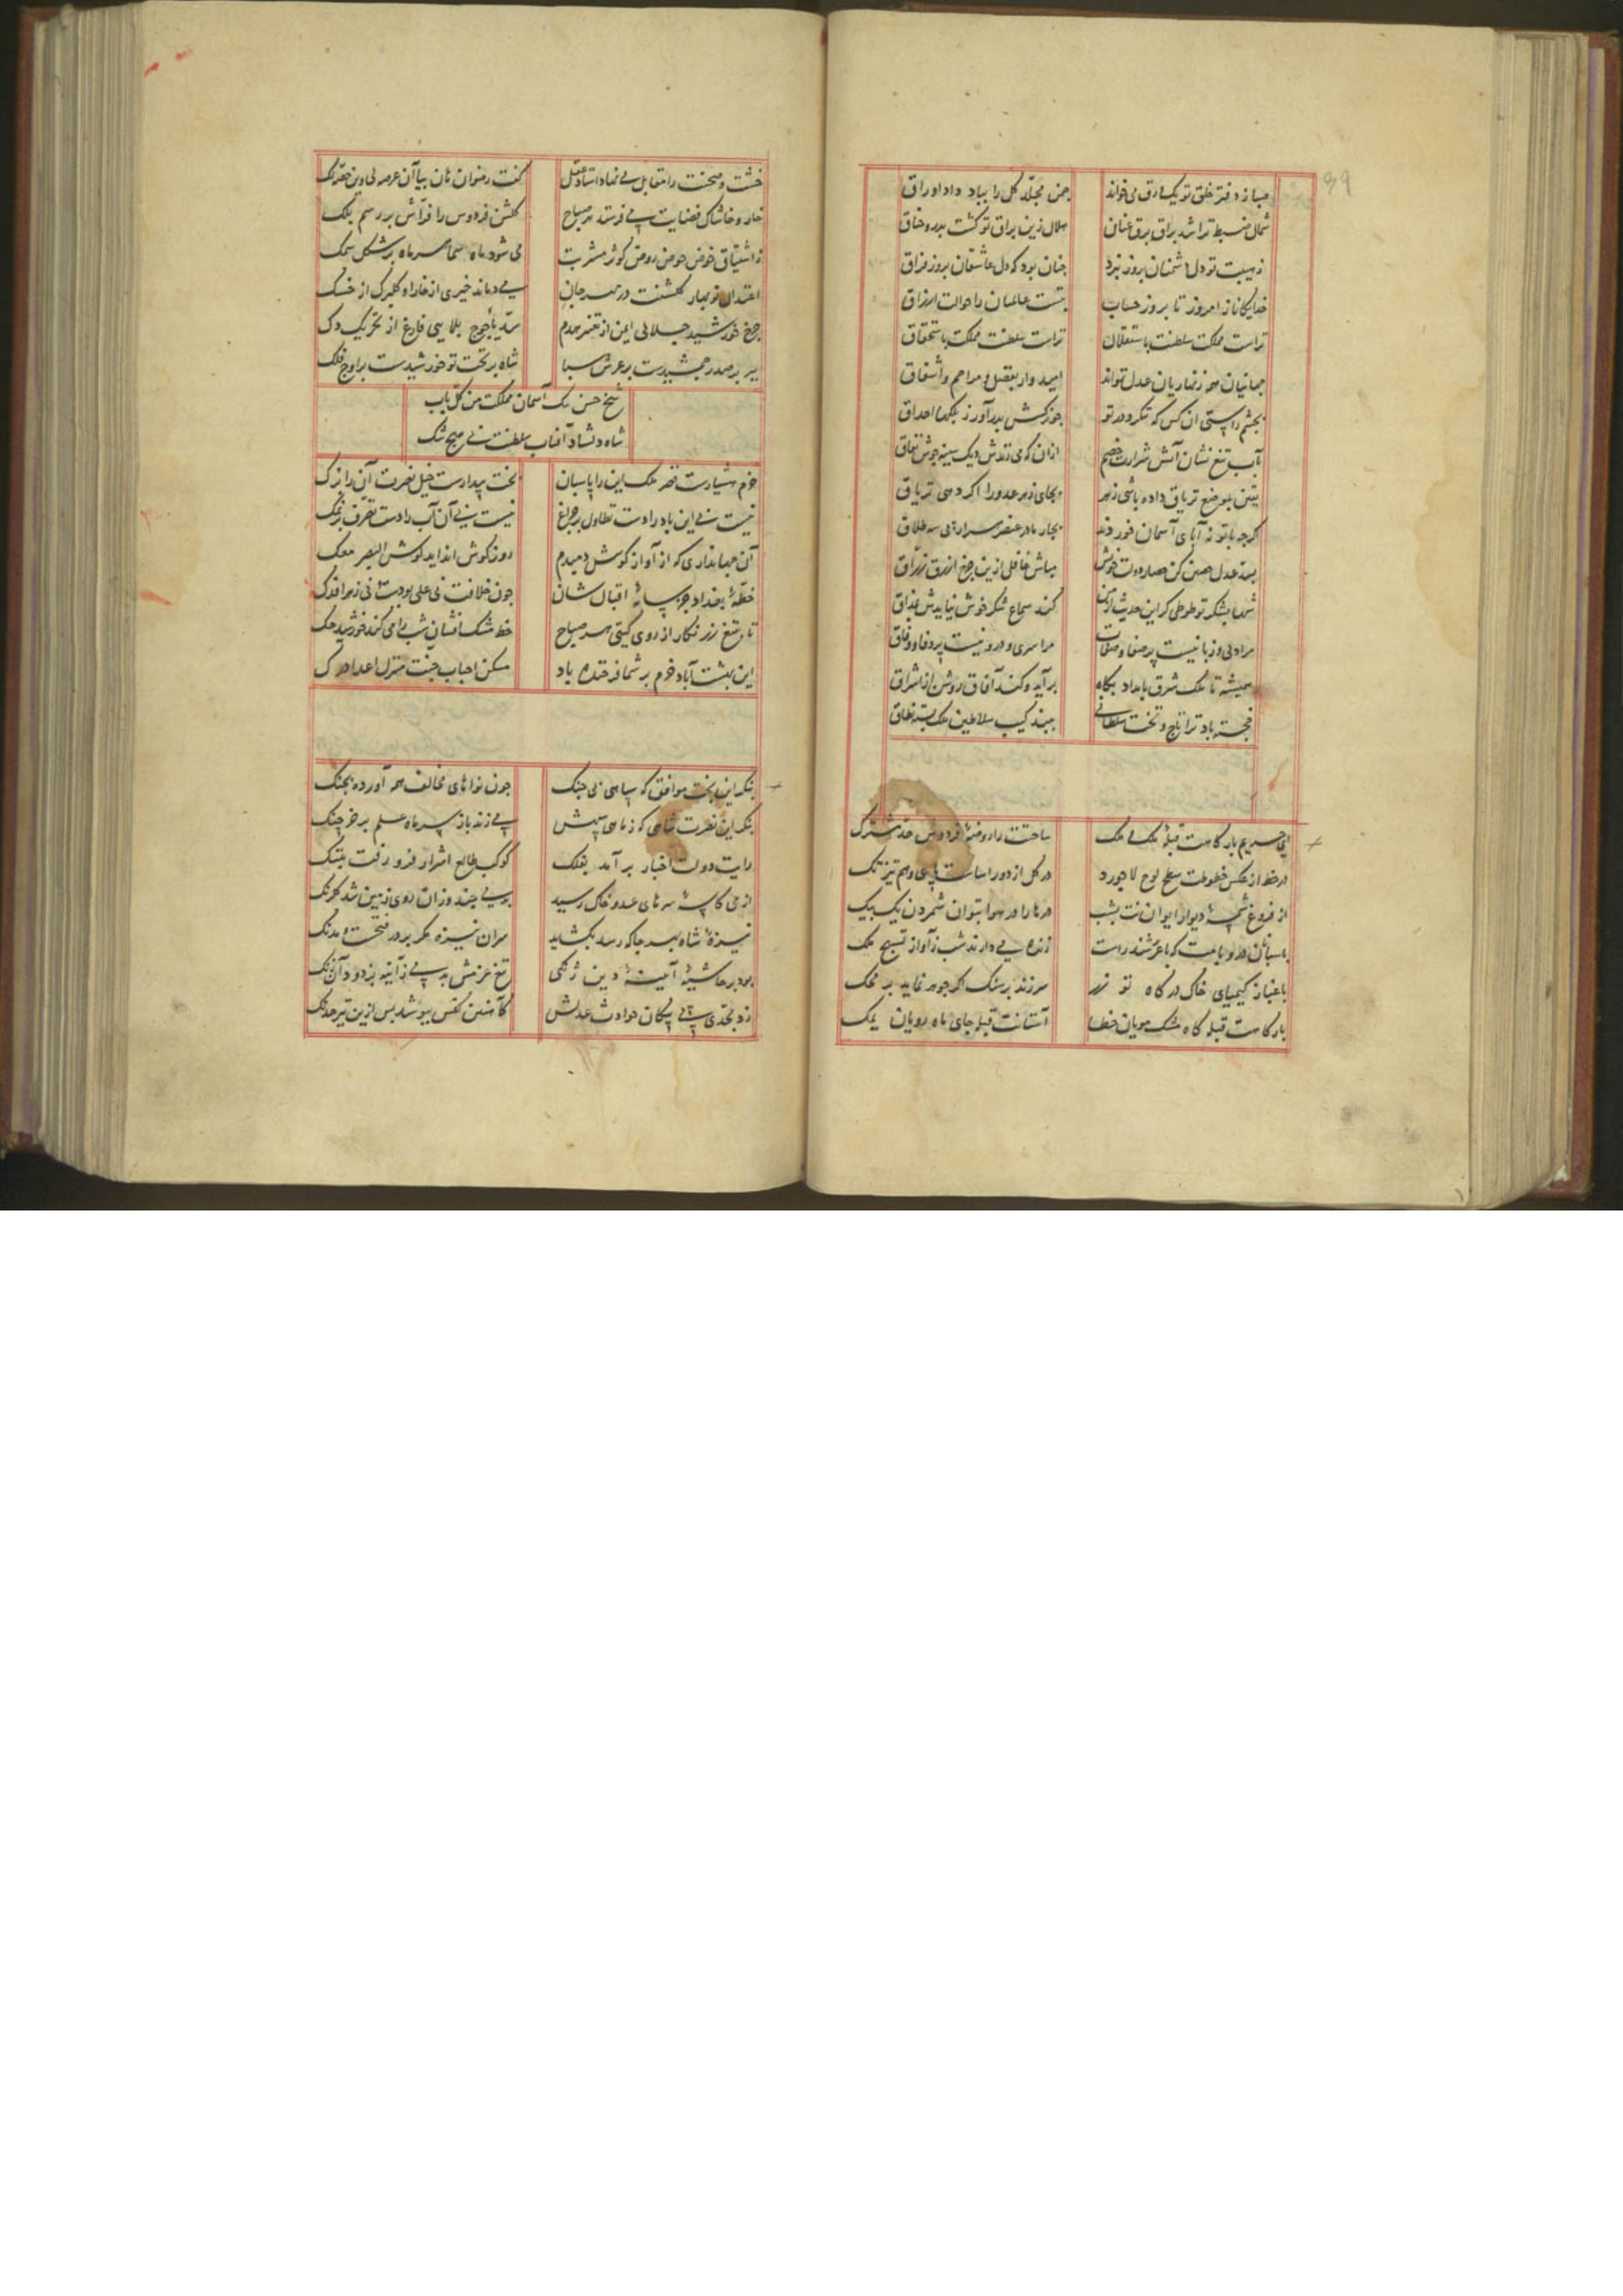 صبا ز دفتر خلق تو یک ورق می خواند چمن مجلد کل را بباد داد اوراق
شمال ضبط ترا شد براق برق عنان هلال زین براق تو کشت بدر و خناق
ز هیبت تو دل دشمنان بروز نبرد چنان بود که دل عاشقان بروز فراق
خدایکانا ز امروز تا بروز حساب بتست عالمیان را حوالت ارزاق
تراست مملکت سلطنت باستقلال تراست سلطنت مملکت باستحقاق
جهانیان همه زنهاریان عدل تواند امیدوار بفضل و مراحم و اشفاق
بچشم راستی ان کس که ننکرد در تو
بآب تیغ نشان آتش شرارت خصم ازان که می زندش دیک سینه جوش نفاق
یقین بموضع تریاق داده باشی زهر بجای زهر عدو را اکر دهی تریاق
کرچه با تو نه آبای آسمان خورد چهار مادر عنصر سه طلاق
بسد عدل حصین کن حصار دولت خویش مباش غافل ازین چرخ ازرق زراق
شها بشکر تو طوطی کر این حدیث کند سماع شکر خوش نیایدش بمذاق
مرا دلی و زبانیست پر صفا و صفات مرا سری و درونیست پر وفا و وفاق
همیشه تا ملک شرق بامداد بکاه برآید و کند آفاق روشن از اشراق
خجسته باد ترا تاج و تخت سلطانی ببند کیت سلاطین ملک بسته نطاق
ای حریم بارکاهت قبلهٔ ملک ملک ساحتت را روضهٔ فردوس حد مشترک
در خط از عکس خطوطت سطح لوح لاجورد در کل از دور اساست پای وهم تیز تک
از فروغ شمسهٔ دیوار ایوانت بشب در هوا بتوان شمردن یک بیک
پاسبانان در و بامت که با عرشند راست زنده می دارند شب ز آواز تسبیح ملک
باعتبار کیمیای خاک درکاه تو زر سر زند بر سنک اکر جوهر نماید بر محک
بارکاهت قبله کاه مشک مویان خطا آستانت قبله جای ماه رویان یمک
خشت و صحنت را مقابل می نهاد استاد عقل کفت رضوان هان بیا آن عرصه لی وین حصه لک
خار و خاشاک فضایت می فرستد هر صباح کلشن فردوس را فراش بر رسم بلک
ز اشتیاق خوض حوض روض کوثر مشربت می شود ماه سما هر ماه بر شکل سمک
اعتدال نوبهار کلشنت در مهرجان می دماند خیری از خارا و کلبرک از خسک
چرخ خورشید جلالی ایمن از تغییر هدم سد یأجوج بلایی فارغ از تحریک دک
میر بر صدر جمشیدست بر عرش سبا شاه بر تخت تو خورشیدست بر اوج فلک
شیخ حسن بک آسمان مملکت من کل باب
شاه دلشاد آفتاب سلطنت بی هیچ شک
حزم هشیارست قصر ملک این را پاسبان بخت بیدارست خیل نصرت آن را یزک
نیست بی این باد را دست تطاول بر چراغ نیست بی آن آب را دست تصرف بر نمک
آن جهانداری که از آواز کوس دمبدم روز کوش انداید کوس البصر معک
خطهٔ بغداد جز سایهٔ اقبال شان چون خلافت بی علی بودست بی زهرا فدک
تا بتیغ زرنکار از روی کیتی هر صباح خط مشک افشان شب را می کند خورشید حک
این بهشت آباد خرم بر شما فرخنده باد مسکن احباب جنت منزل اعدا درک
بنکر این بخت موافق که سپاهی بی جنک چون نواهای مخالف همه آورده بچنک
بنکر این نصرت شاهی که ز ماهی سپهش می زند باز سر ماه علم بر خرچنک
رایت دولت اخیار بر آمد بفلک کوکب طالع اشرار فرو رفت بتنک
از می کاسهٔ سرهای عدو خاک رسید بویی چند وزان روی زمین شد کلرنک
نیزهٔ شاه بهر جا که رسد بکشاید
بود بر حاشیهٔ آینهٔ دین زنکی تیغ عزمش پدید ز آینه بزدود آن زنک